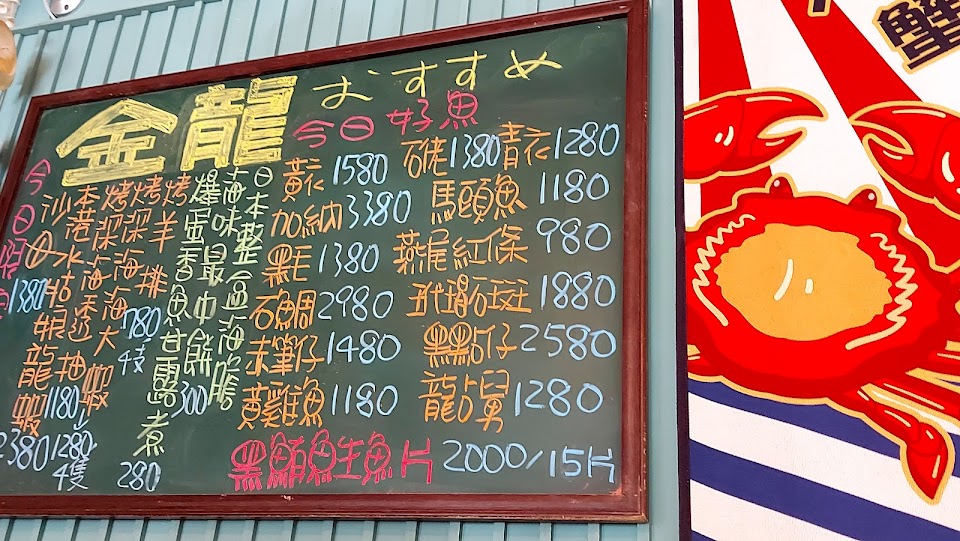 金龍 おすすめ
今日好魚
黃衣 1580
石佬 1380 青衣 1280
加納 3380
馬頭魚 1180
黑毛 1380
燕尾紅條 980
石鯛 2980
玳瑁石斑 1880
末筆仔 1480
黑點仔 2580
黃雞魚 1180
龍占舅 1280
黑鮪魚生魚片 2000/15片
日本整盒海膽
海味最中餅 300
爆蛋香魚甘露煮 280
烤羊排 780 4支
烤深海大蝦 1280 4隻
烤深海透抽 1180
本港水姑娘龍蝦 2380
沙公 1380
今日限
蟹